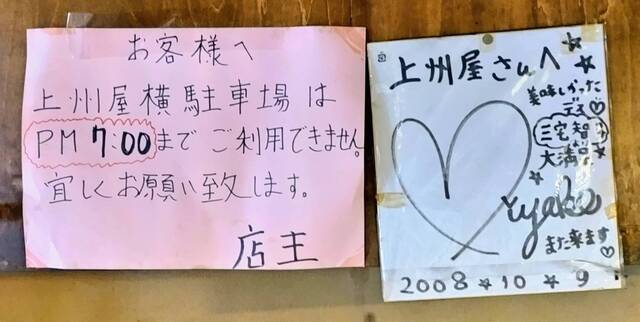 お客様へ
上州屋横駐車場は
PM 7:00まで ご利用できません。
宜しくお願い致します。
店主
上州屋さんへ
美味しかった
デス♡
三宅智子
大満足
また来ます
2008☆10☆9